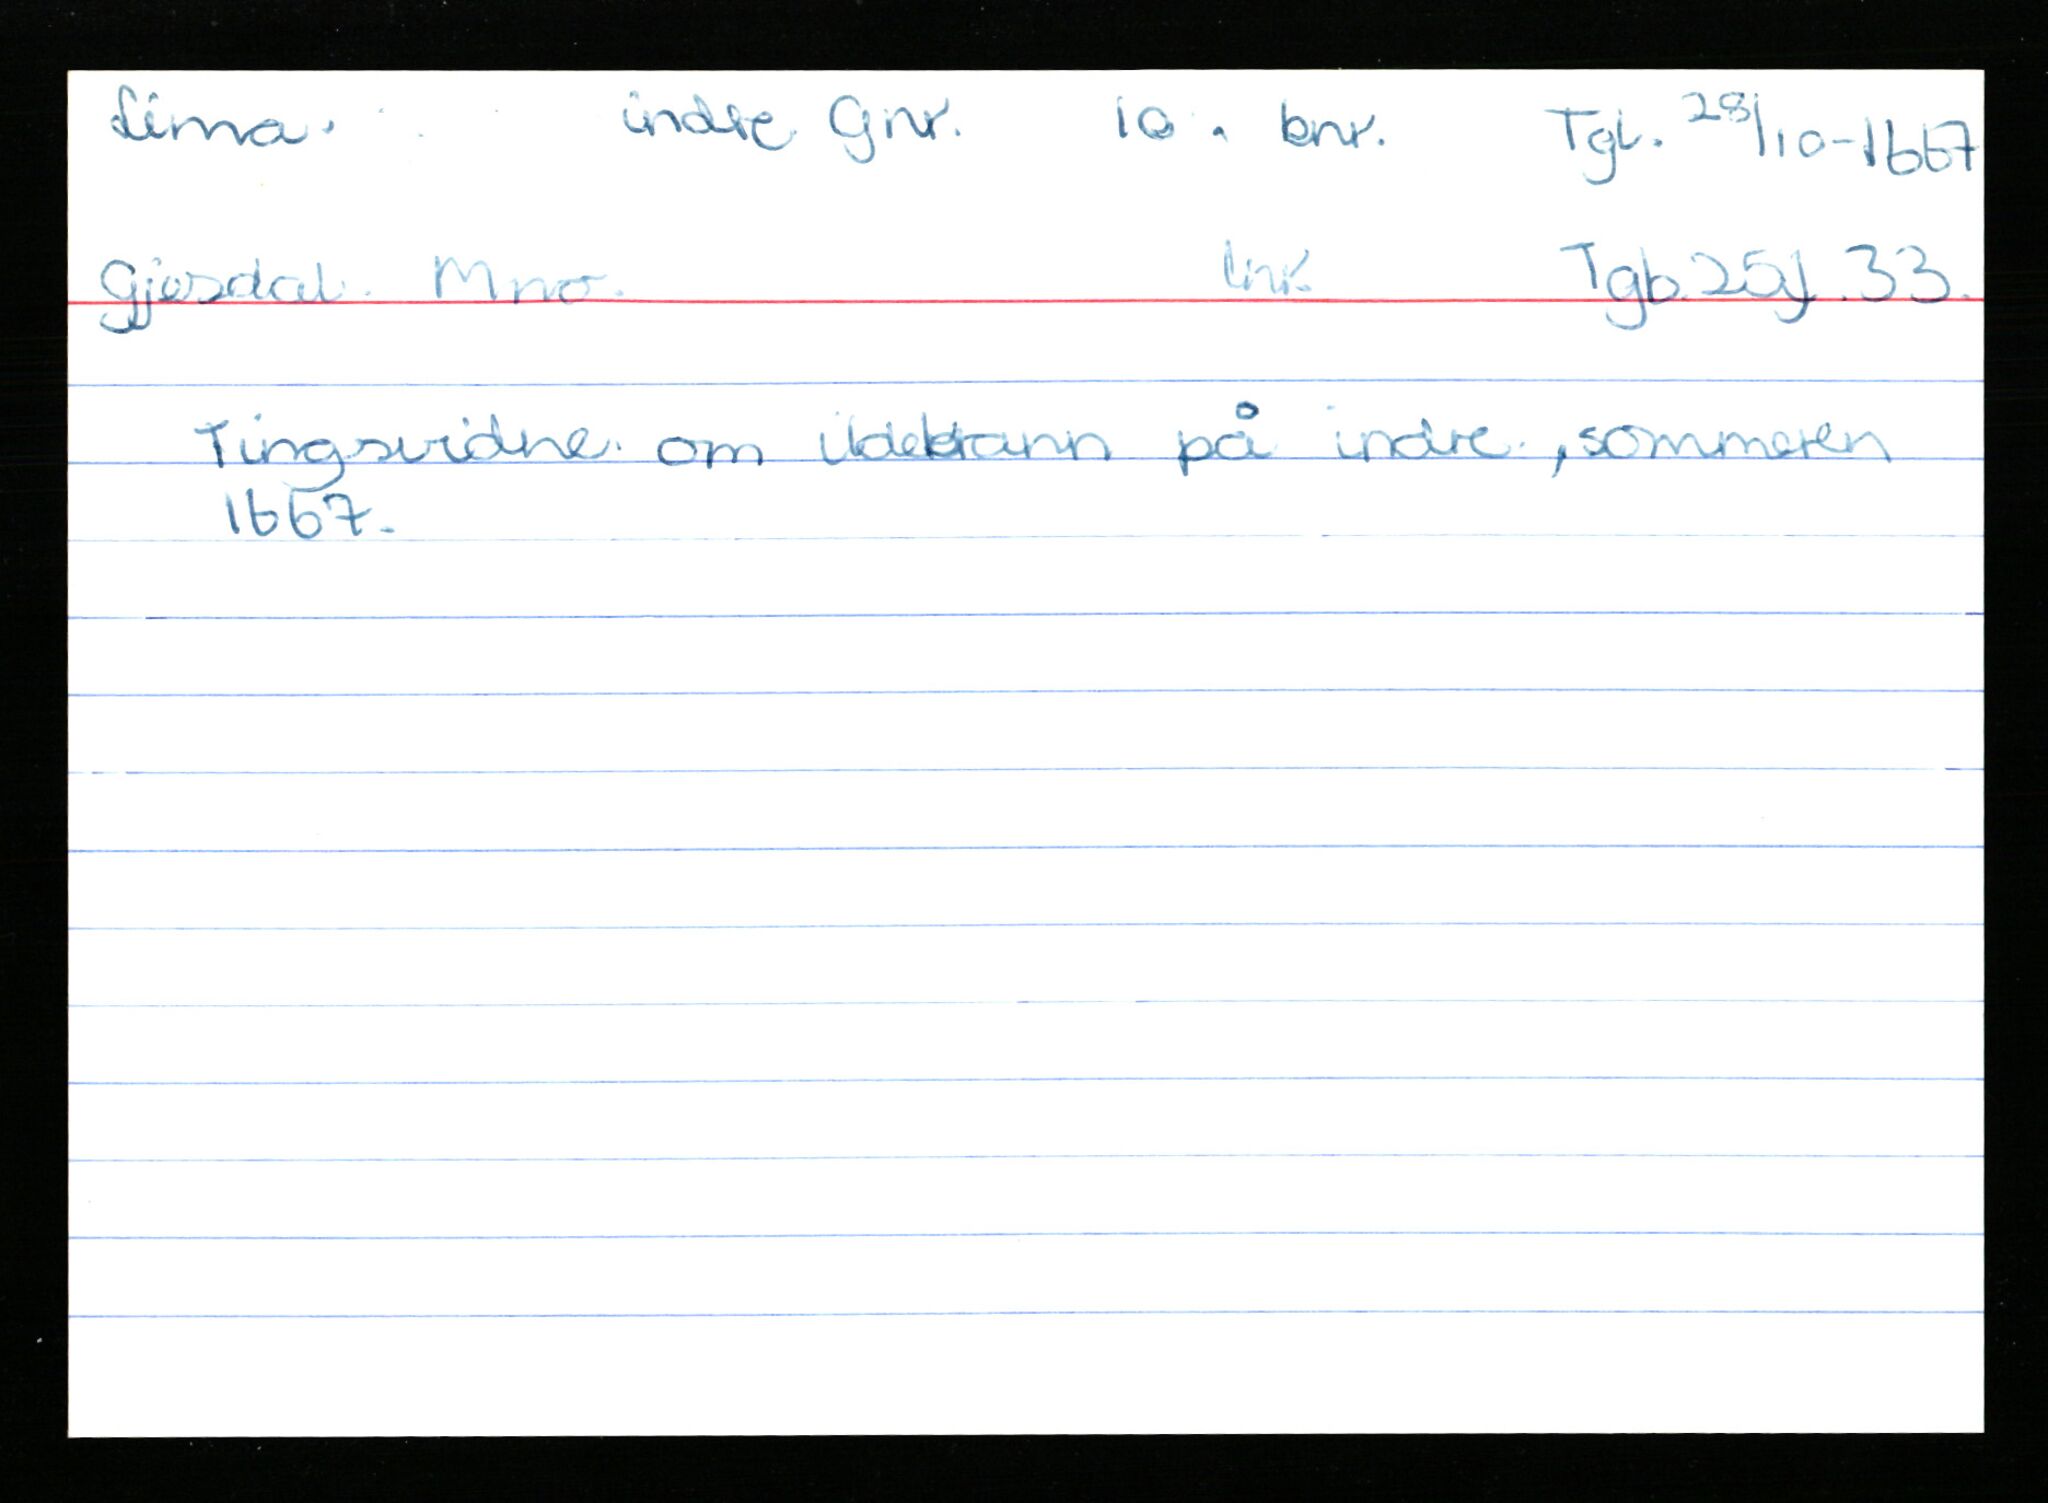 Lima. indre Gnr. 10. bnr. Tgl. 28/10-1667
Gjesdal. Mno. lnr. Tgb.25j.33.
Tingsvidne om ildebrann på indre, sommeren
1667.